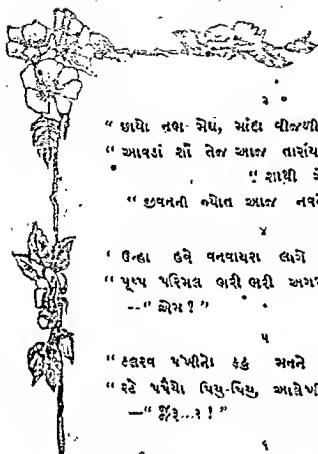 ૩
" છાયો નભ મેઘ, માંદા વીજળી
" આવડાં શાં તેજ આજ તારાંય
" શાથી
" જીવનની જ્યોત આજ
૪
" ઉન્હા હવે વનવાયરા લાગે
" પૂષ્પ પરિમલ ભરી ભરી
—" એમ ? "
૫
" કલરવ પંખીનો કહુ મનને
" રટે પપૈયો પિયુ-પિયુ,
—" જરૂ...ર ! "
૬